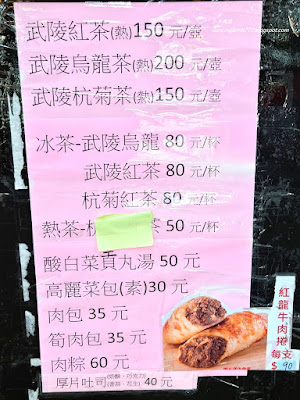 武陵紅茶(熱)150元/壺
武陵烏龍茶(熱)200元/壺
武陵杭菊茶(熱)150元/壺
冰茶-武陵烏龍 80 元/杯
武陵紅茶 80 元/杯
杭菊紅茶 80 元/杯
熱茶- 茶 50 元/杯
酸白菜貢丸湯 50 元
高麗菜包(素)30 元
肉包 35 元
筍肉包 35 元
肉粽 60 元
厚片吐司 40 元
紅龍牛肉捲
每支
$ 90